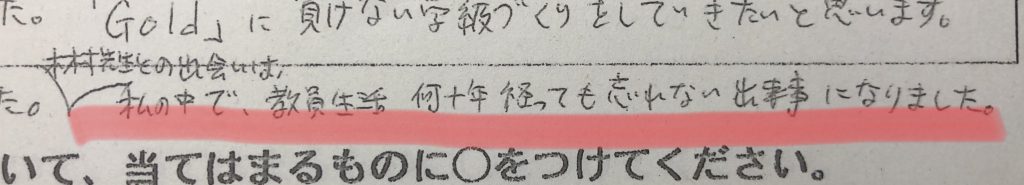 た。「Gold」に負けない学級づくりをしていきたいと思います。
木村先生との出会いは、
た。私の中で、教員生活 何十年経っても忘れない出来事になりました。
いて、当てはまるものに○をつけてください。